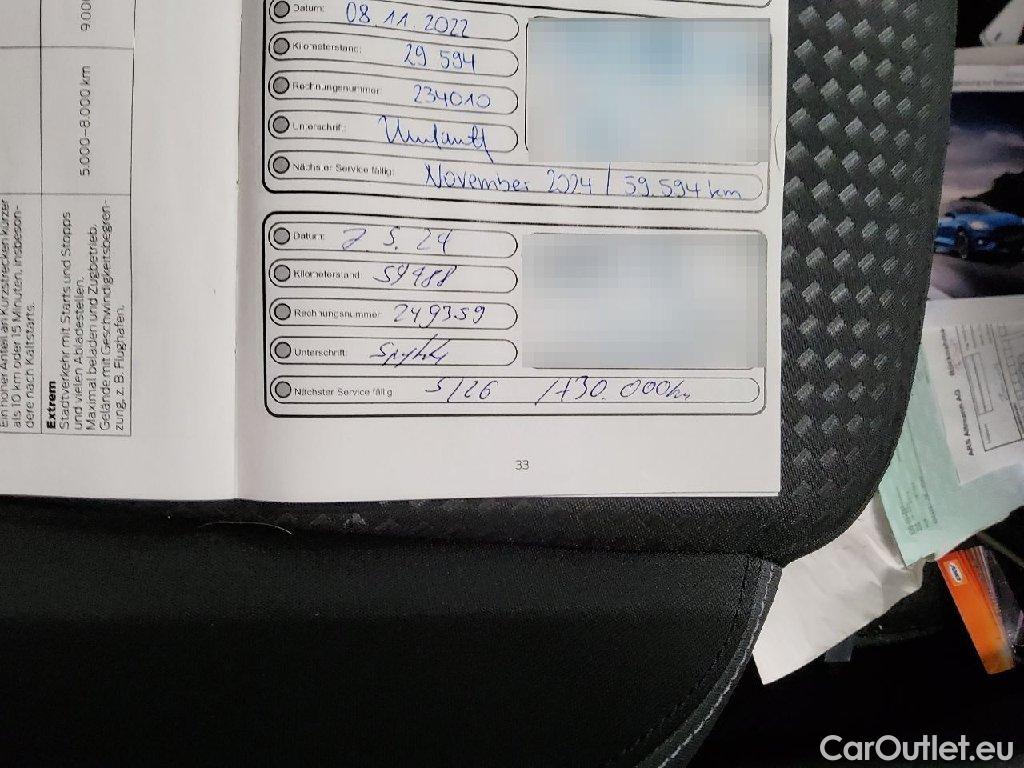 Datum: 08.11.2022
Kilometerstand: 29 594
Rechnungsnummer: 234010
Unterschrift:
Nächster Service fällig: November 2024 / 59.594 km
Datum: 7 5. 24
Kilometerstand:
Rechnungsnummer: 249359
Unterschrift:
Nächster Service fällig: 5/26 /+30.000km
33
9.000
5.000–8.000 km
Ein hoher Anteil an Kurzstrecken kürzer
als 10 km oder 15 Minuten, insbeson-
dere nach Kaltstarts.
Extrem
Stadtverkehr mit Starts und Stopps
und vielen Abladestellen.
Maximal beladen und Zugbetrieb.
Gelände mit Geschwindigkeitsbegren-
zung, z. B. Flughafen.
CarOutlet.eu